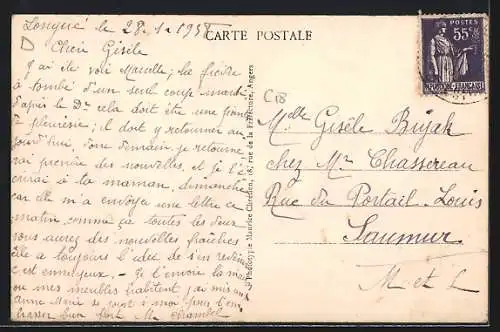 Longué le 28-1-1938
CARTE POSTALE
Chère Gisèle
J'ai été voir Marcelle, la fièvre
à tombé d'un seul coup mardi
d'après le Dr cela doit être une
pleurésie; il doit y retourner au
jourd'hui, demain je retourne
rai prendre des nouvelles, et je l'é
crirai à ta maman, dimanche
car elle m'a envoyé une lettre ce
matin, comme ça toutes les deux
vous aurez des nouvelles fraîches
elle a toujours l'idée de s'en
c'est ennuyeux. - Je l'envoie la
ou mes meubles habitent j'ai mis
Anne Marie
brasser bien fort M.
Photocypie Maurice Chrétien, 18, rue de la Préfecture, Angers
POSTES
55c
RÉPUBLIQUE FRANÇAISE
C18
Melle Gisèle Bujak
chez Mr Chassereau
Rue du Portail-Louis
Saumur
M et L